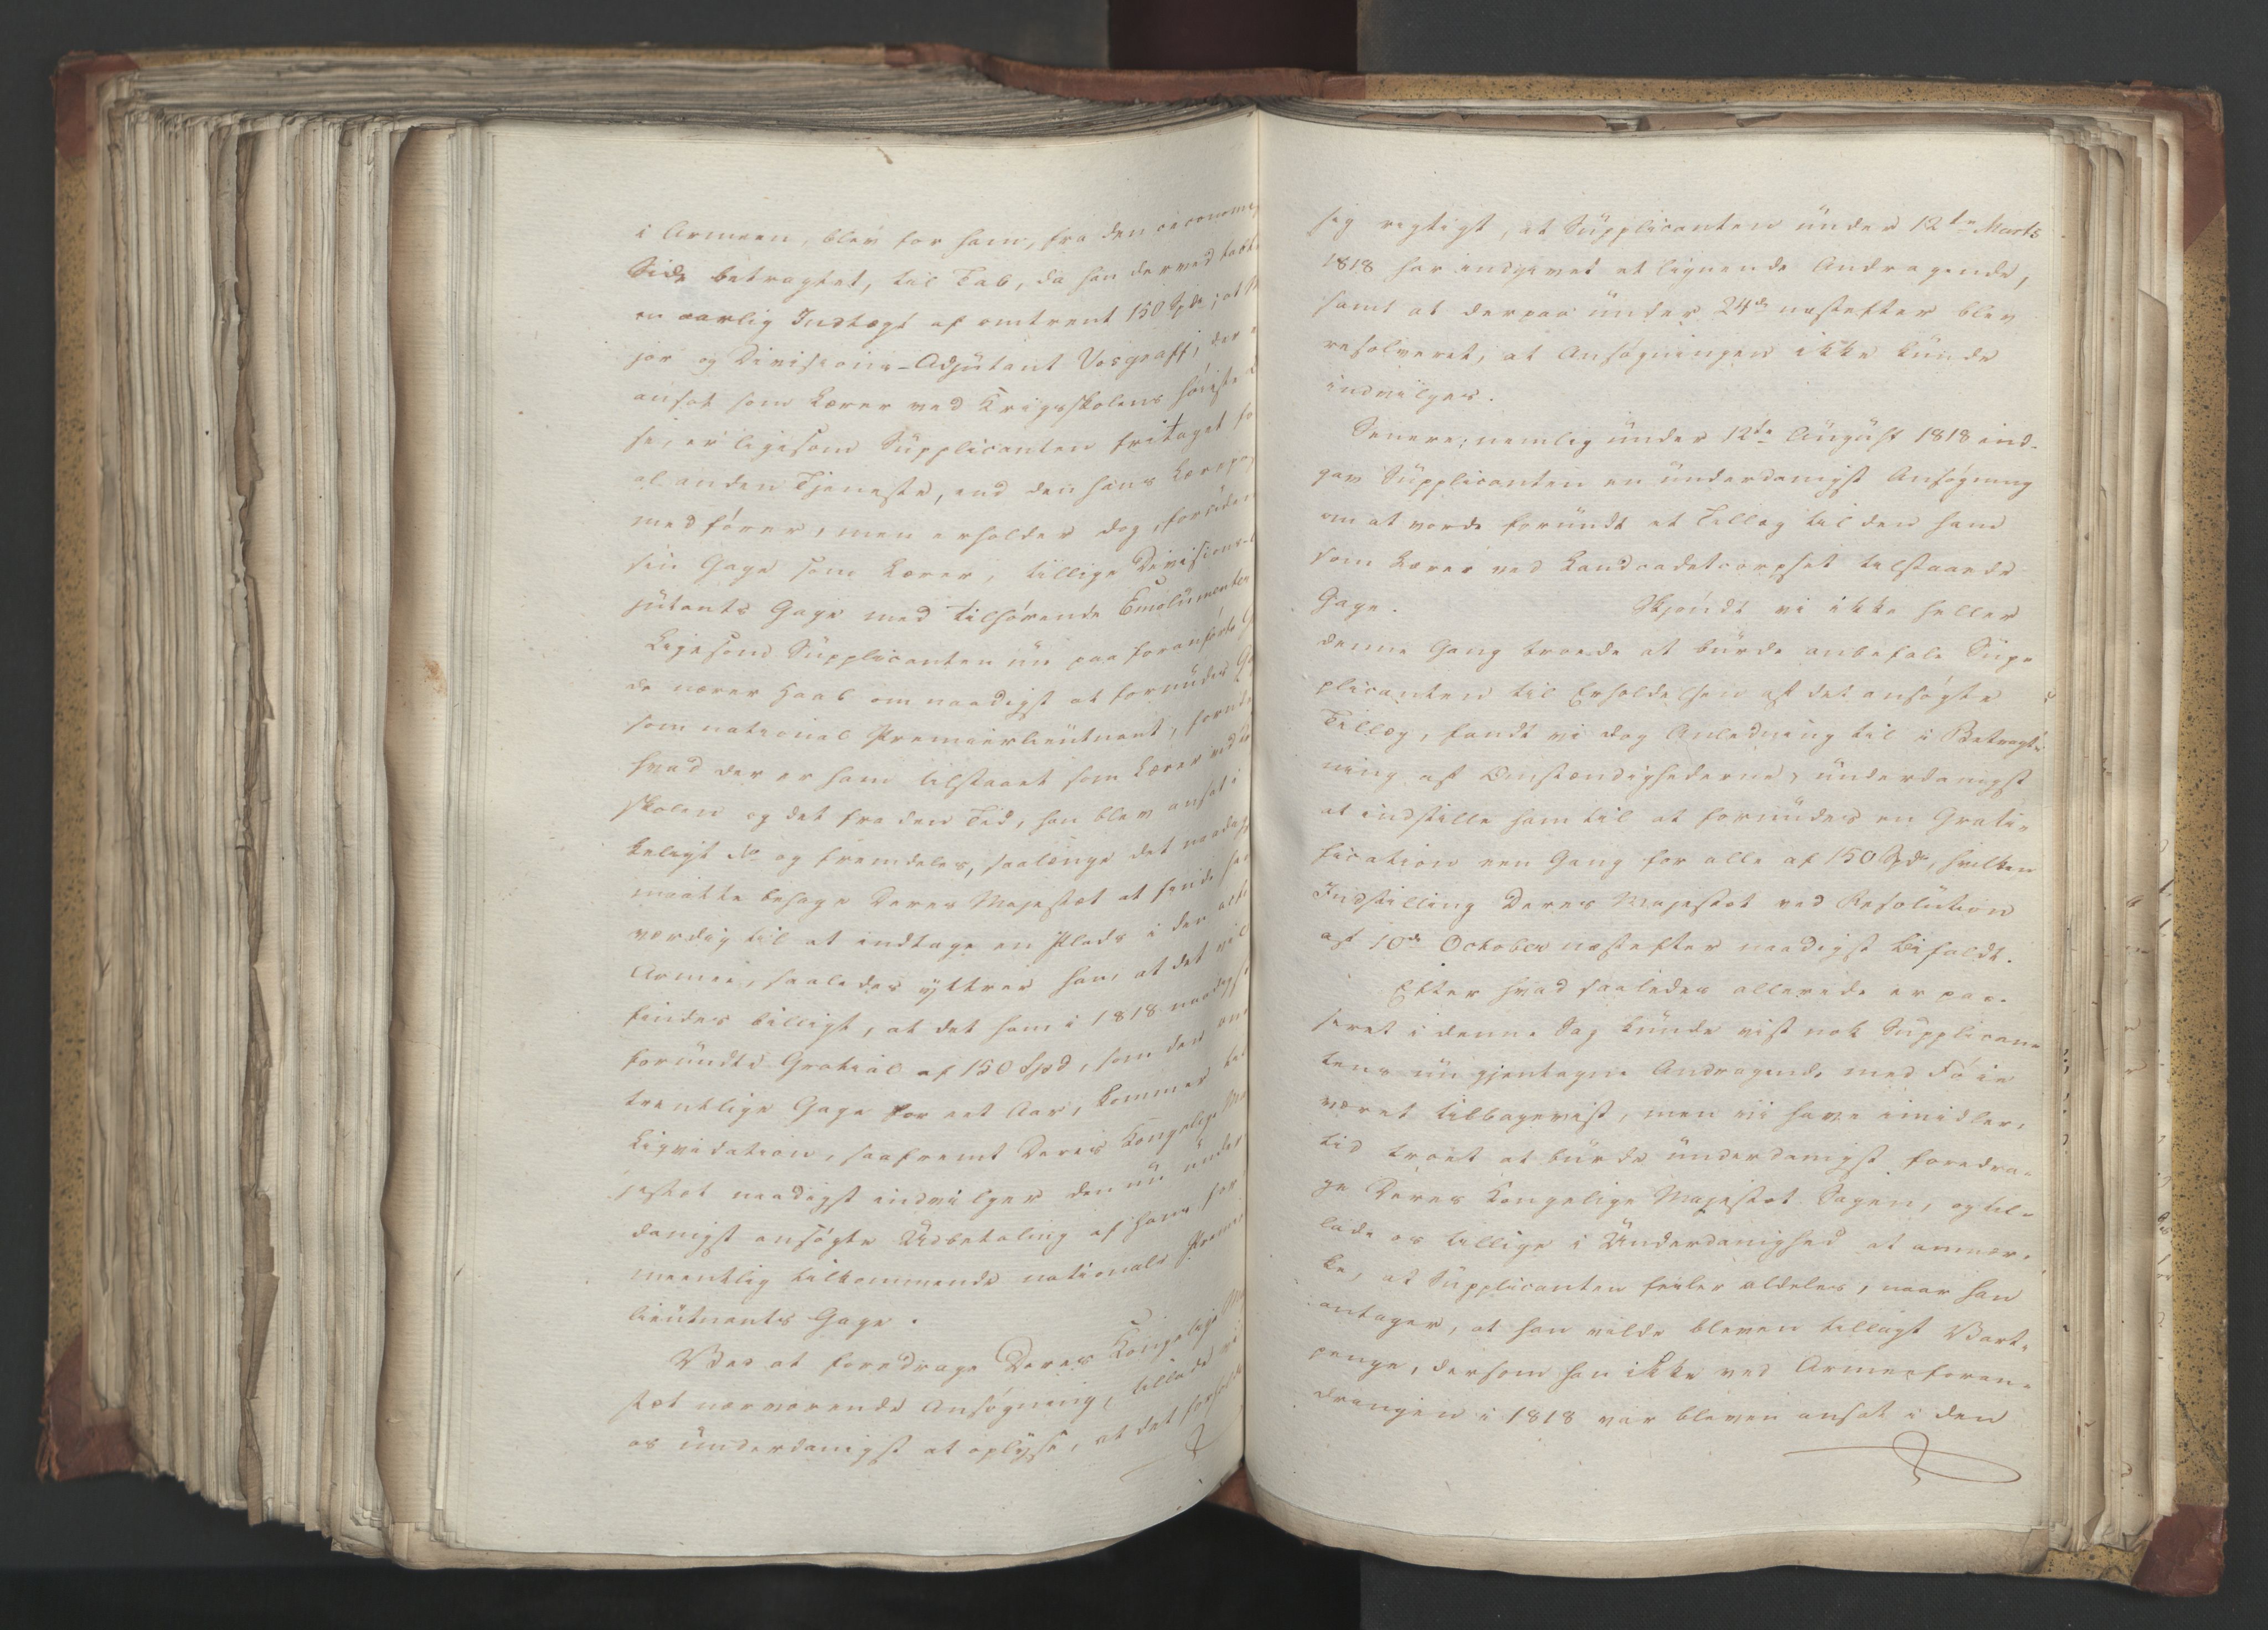 i Armeen, blev for ham, fra den oeconomi
Side betragtet, til Tab, da han derved tabte
en aarlig Indtægt af omtrent 150 Spd; at M
jor og Divisions-Adjutant Vosgraff, der
ansat som Lærer ved Krigsskolens høieste
se, er ligesom Supplicanten fritaget fo
al anden Tjeneste, end den hans Lærepo
medfører, men erholder dog, foruden
sin Gage som Lærer, tillige Divisions-A
jutants Gage med tilhørende Emolumenter
Ligesom Supplicanten nu paa foranførte G
de nærer Haab om naadigst at forundes Ga
som national Premierlieutnant, forude
hvad der er ham tilstaaet som Lærer ved
skolen og det fra den Tid, han blev ansat i
belagt No og fremdeles, saalænge det naadigst
maatte behage Deres Majestæt at finde ha
værdig til at indtage en Plads i den
Armee, saaledes yttrer han, at det vil
findes billigt, at det ham i 1818 naadigst
forundte Gratial af 150 Spd, som den om
trentlige Gage for eet Aar, kommer til
Liqvidation, saafremt Deres Kongelige Ma
jestæt naadigst indvilger den nu under
danigst ansøgte Udbetaling af hans for
meentlig tilkommende nationale Premier
lieutnants Gage.
Ved at foredrage Deres Kongelige Ma
stæt nærværende Ansøgning, tillade vi
os underdanigst at oplyse, at det forholder
sig rigtigt, at Supplicanten under 12te Marts
1818 har indgivet et lignende Andragende,
samt at derpaa under 24de næstefter blev
resolveret, at Ansøgningen ikke kunde
indvilges.
Senere, nemlig under 12te August 1818 ind-
gav Supplicanten en underdanigst Ansøgning
om at vorde forundt et Tillæg til den ham
som Lærer ved Landcadetcorpset tilstaaede
Gage. Skjøndt vi ikke heller
denne Gang troede at burde anbefale Sup-
plicanten til Erholdelsen af det ansøgte
Tillæg, fandt vi dog Anledning til i Betragt-
ning af Omstændighederne, underdanigst
at indstille ham til at forundes en Grati-
fication een Gang for alle af 150 Spd, hvilken
Indstilling Deres Majestæt ved Resolution
af 10de October næstefter naadigst bifaldt.
Efter hvad saaledes allerede er pas-
seret i denne Sag kunde vist nok Supplican-
tens nu gjentagne Andragende med Føie
været tilbageviist, men vi have imidler-
tid troet at burde underdanigst foredra-
ge Deres Kongelige Majestæt Sagen, og til-
lade os tillige i Underdanighed at anmær-
ke, at Supplicanten feiler aldeles, naar han
antager, at han vilde bleven tillagt Vart-
penge, dersom han ikke ved Armeeforan-
dringen i 1818 var bleven ansat i den